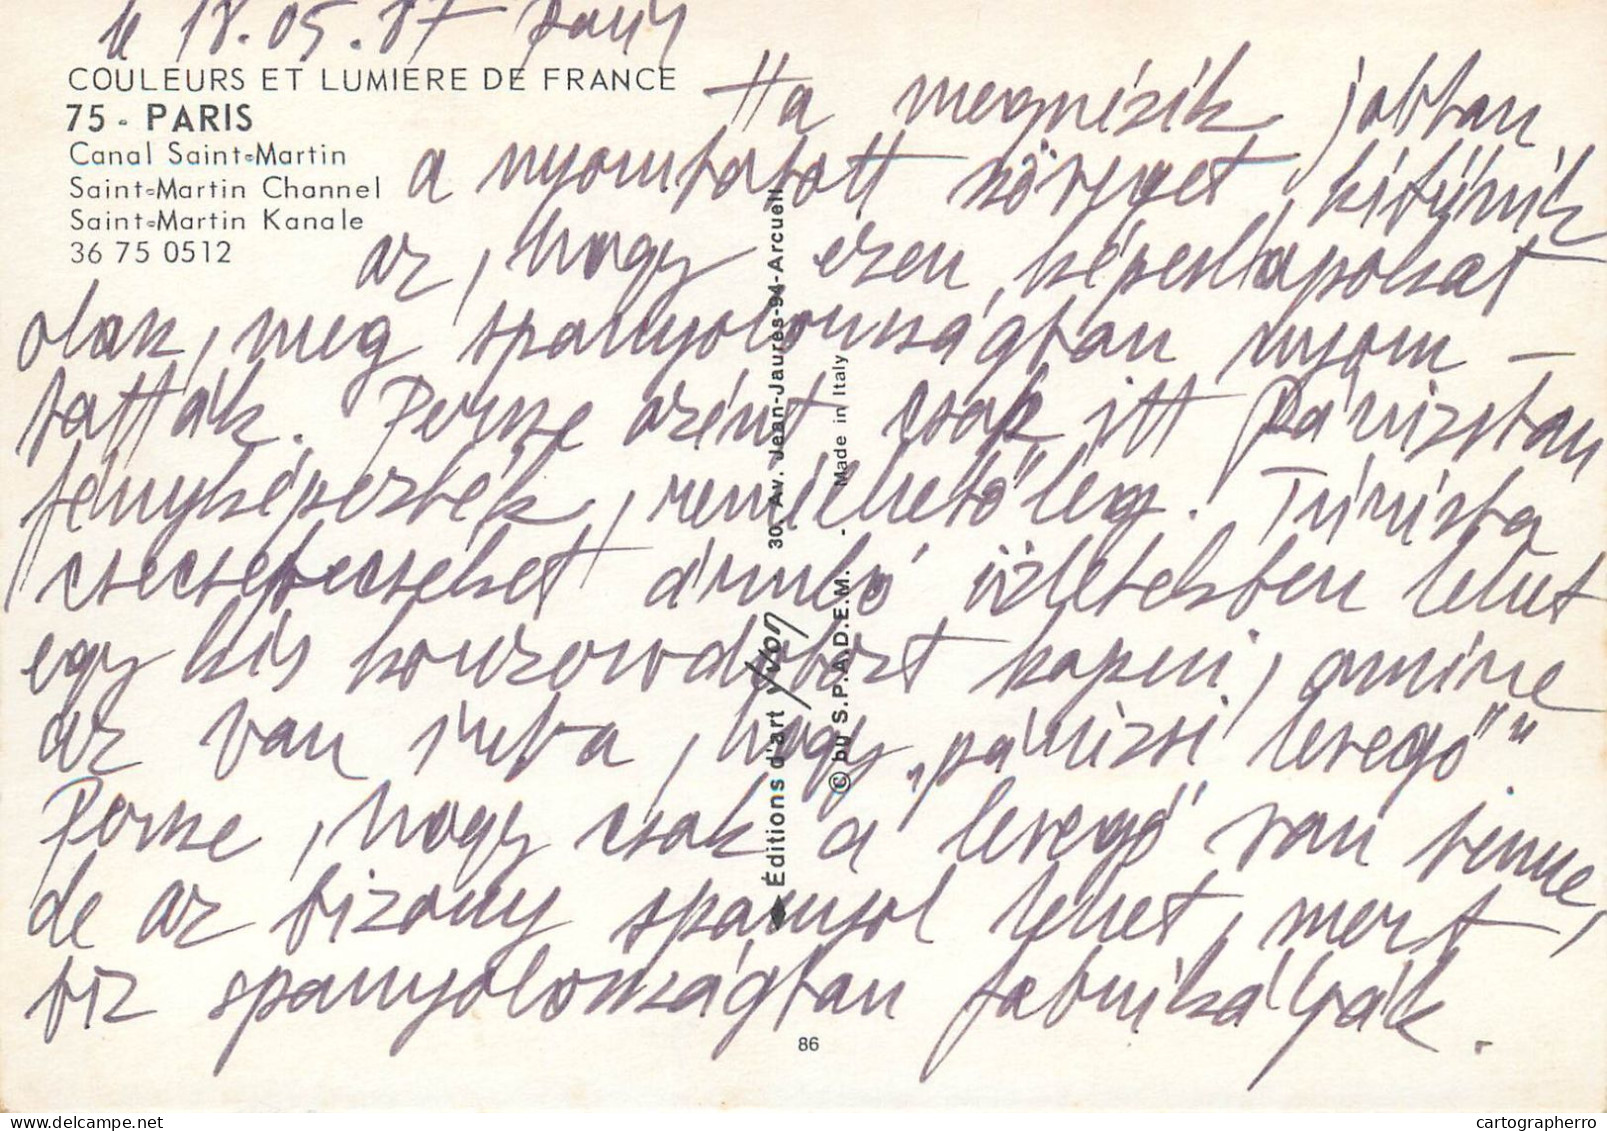 le 18.05.87 Paris
COULEURS ET LUMIERE DE FRANCE
75 - PARIS
Canal Saint-Martin
Saint-Martin Channel
Saint-Martin Kanale
36 75 0512
Ha megnézik jobban
a nyomtatott szöveget, kitűnik
az, hogy ezen képeslapokat
olak, meg spanyolországban nyom-
tatták. Persze azért csak itt Párizsban
fényképezték, remélhetőleg. Túrista
csecsebecséket áruló üzletekben lehet
egy kis konzervdobozt kapni, amire
az van írva, hogy „párizsi levegő".
Persze, hogy csak a levegő van benne,
de az bizony spanyol lehet, mert
biz spanyolországban fabrikálják.
Éditions d'art Yvon - 30, Av. Jean-Jaurès-94-Arcueil
© by S.P.A.D.E.M. - Made in Italy
86
cartographerro